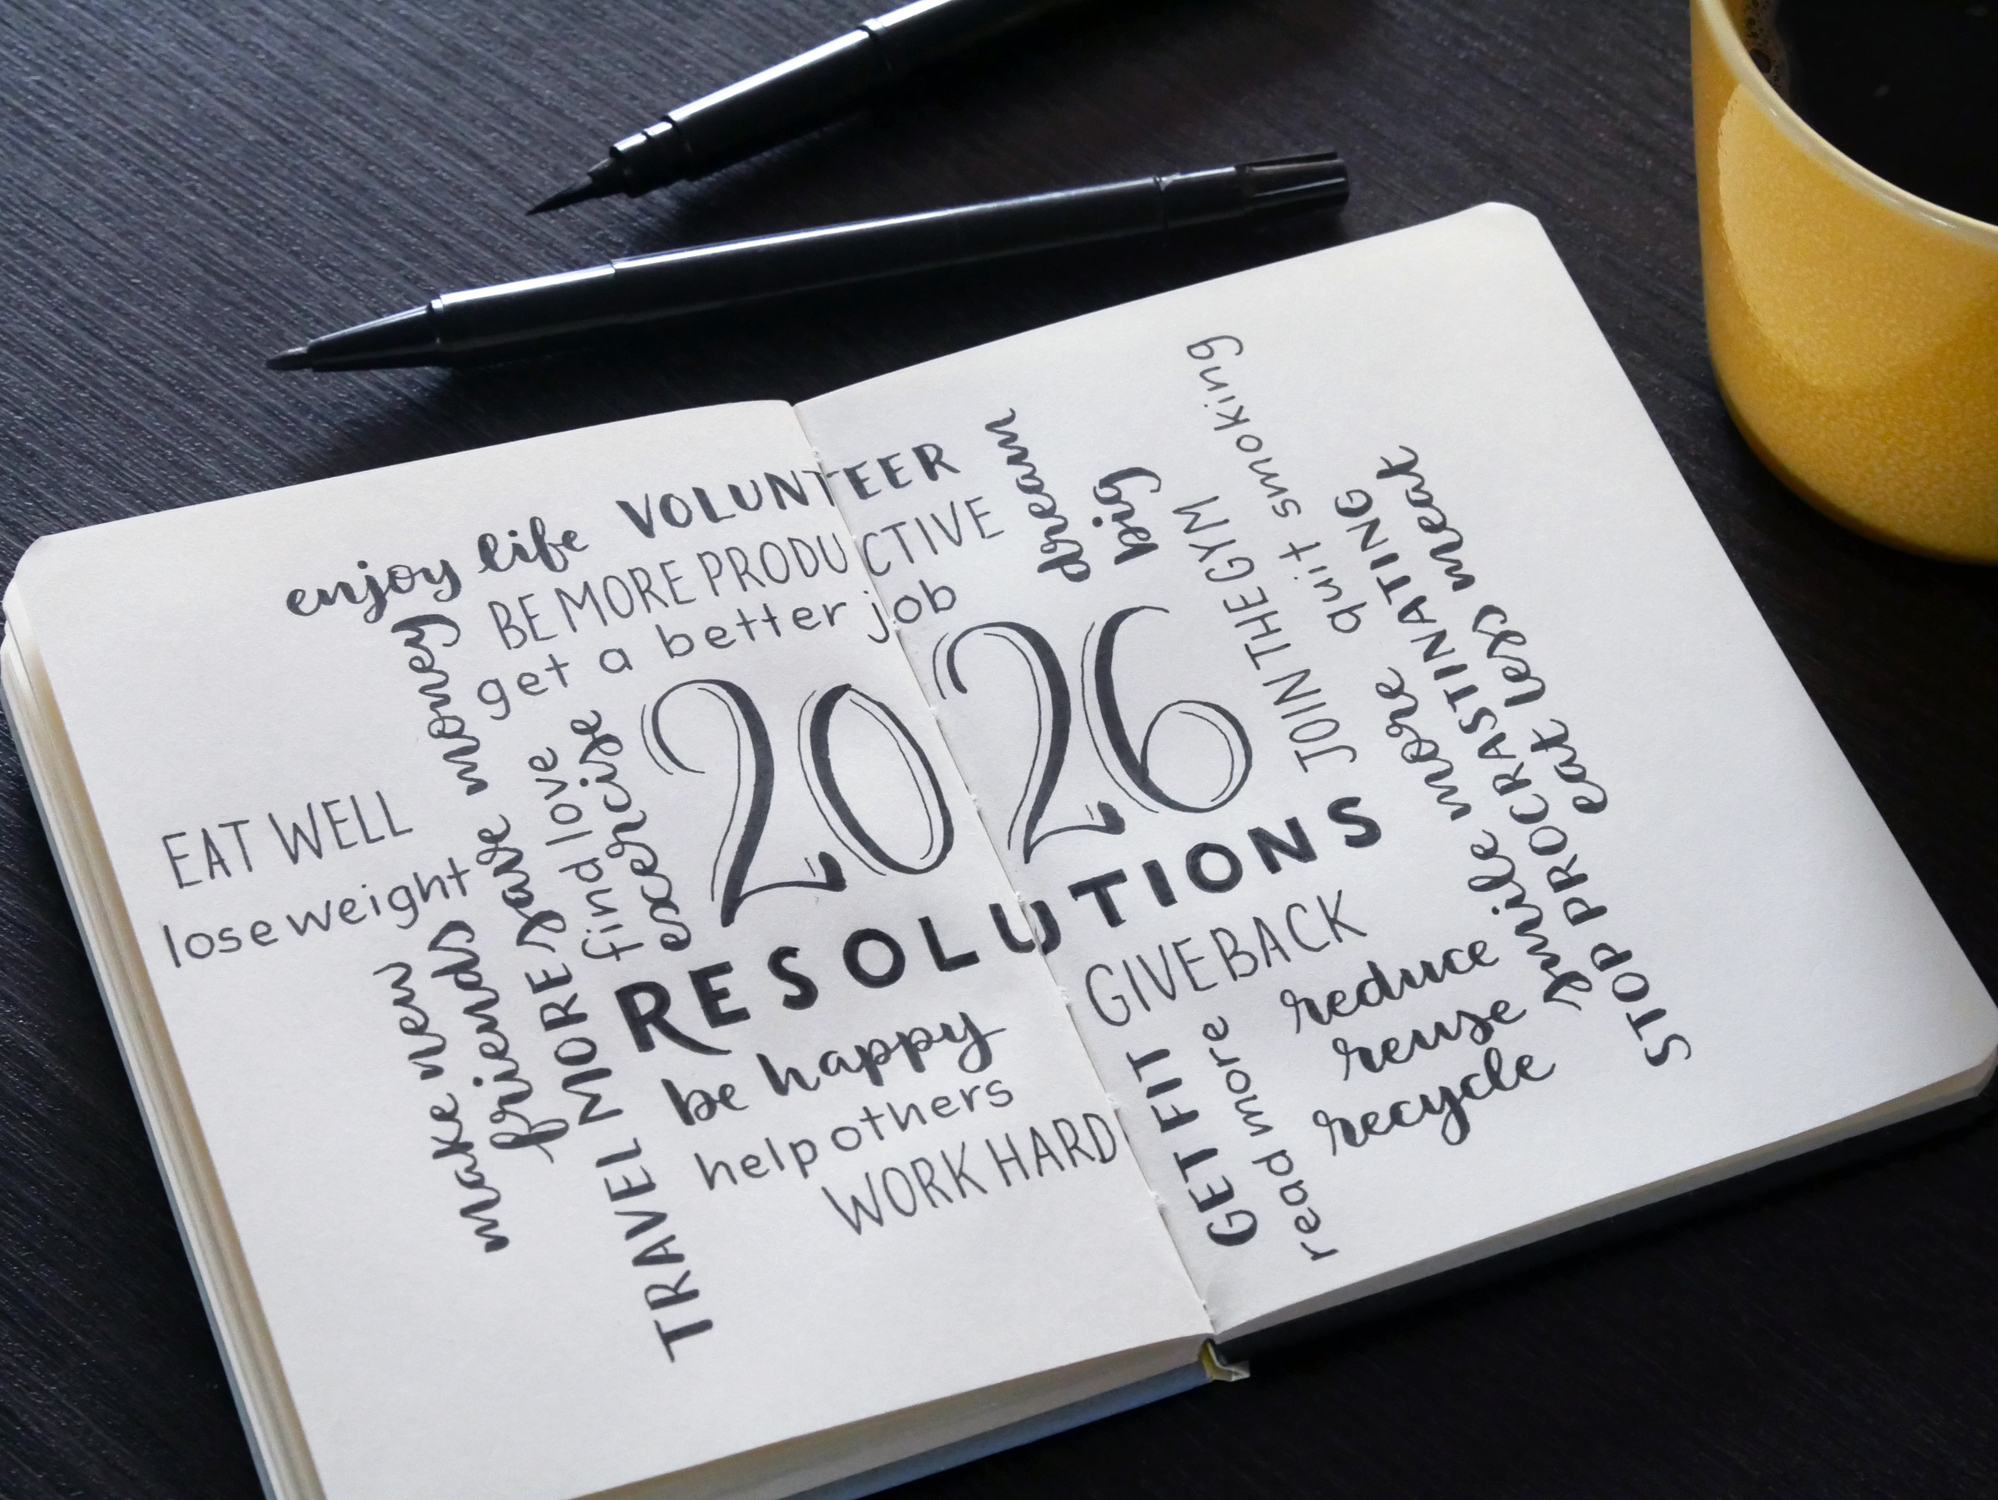 enjoy life VOLUNTEER
BE MORE PRODUCTIVE
get a better job
dream
big
JOIN THE GYM
quit smoking
save money
find love
excercise
2026
RESOLUTIONS
EAT WELL
lose weight
make new
friends
TRAVEL MORE
be happy
help others
WORK HARD
GIVE BACK
GET FIT
read more
reduce
reuse
recycle
smile more
STOP PROCRASTINATING
eat less meat